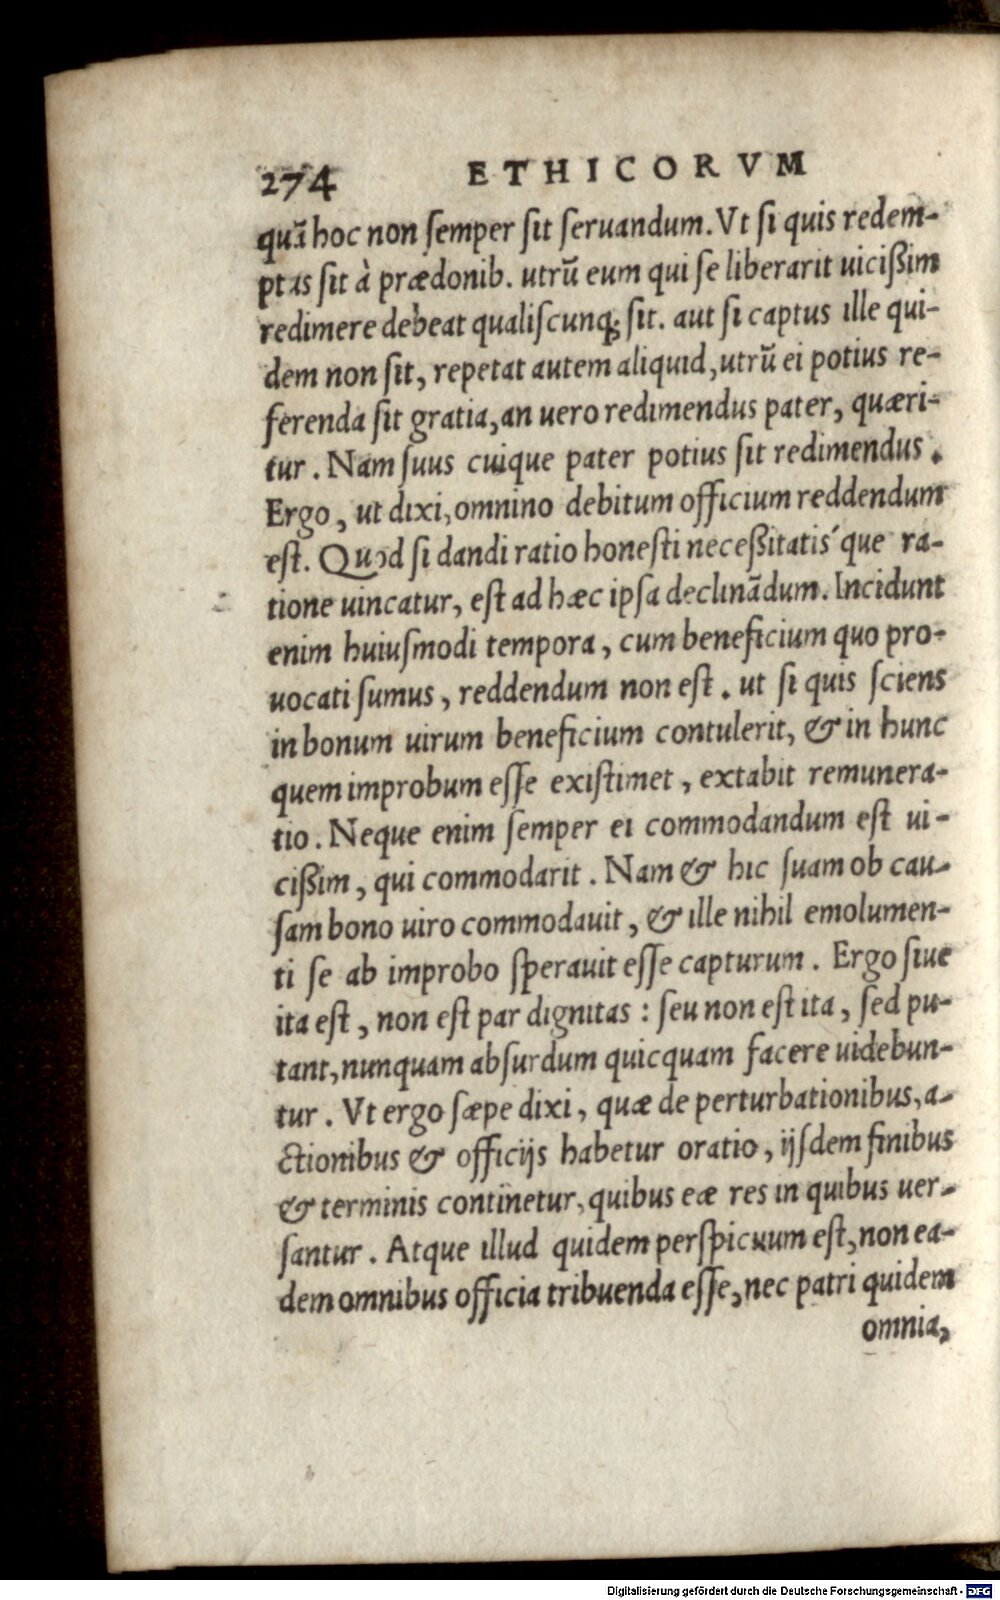 274 ETHICORVM
quã hoc non ſemper ſit ſeruandum. Vt ſi quis redem-
ptus ſit à prædonib. utrũ eum qui ſe liberarit uicißim
redimere debeat qualiſcunq; ſit. aut ſi captus ille qui-
dem non ſit, repetat autem aliquid, utrũ ei potius re-
ferenda ſit gratia, an uero redimendus pater, quæri-
tur. Nam ſuus cuique pater potius ſit redimendus.
Ergo, ut dixi, omnino debitum officium reddendum
eſt. Quod ſi dandi ratio honeſti neceßitatis´que ra-
tione uincatur, eſt ad hæc ipſa declinãdum. Incidunt
enim huiuſmodi tempora, cum beneficium quo pro-
uocati ſumus, reddendum non eſt. ut ſi quis ſciens
in bonum uirum beneficium contulerit, & in hunc
quem improbum eſſe exiſtimet, extabit remunera-
tio. Neque enim ſemper ei commodandum eſt ui-
cißim, qui commodarit. Nam & hic ſuam ob cau-
ſam bono uiro commodauit, & ille nihil emolumen-
ti ſe ab improbo ſperauit eſſe capturum. Ergo ſiue
ita eſt, non eſt par dignitas: ſeu non eſt ita, ſed pu-
tant, nunquam abſurdum quicquam facere uidebun-
tur. Vt ergo ſæpe dixi, quæ de perturbationibus, a-
ctionibus & officijs habetur oratio, ijſdem finibus
& terminis continetur, quibus eæ res in quibus uer-
ſantur. Atque illud quidem perſpicuum eſt, non ea-
dem omnibus officia tribuenda eſſe, nec patri quidem
omnia,
Digitalisierung gefördert durch die Deutsche Forschungsgemeinschaft - DFG